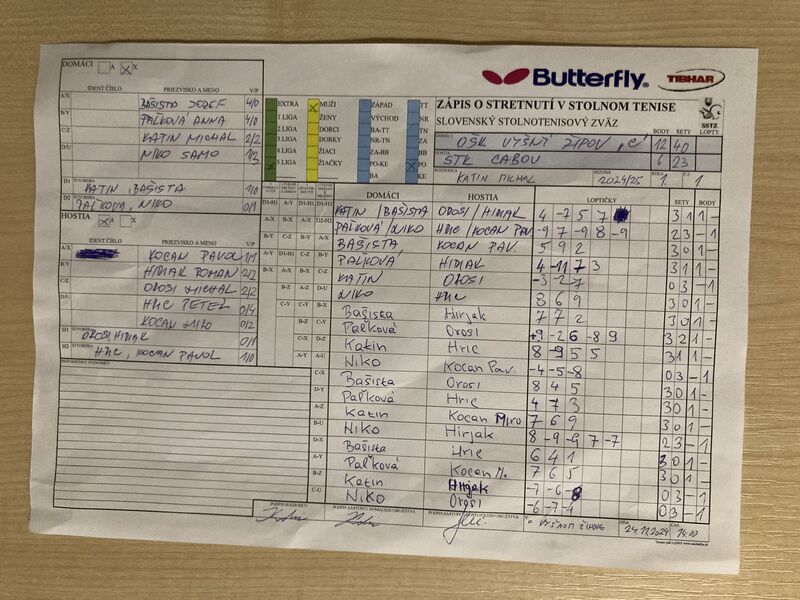 DOMÁCI A X
Butterfly
TIBHAR
IDENT ČÍSLO PRIEZVISKO A MENO V/P
A/X BAŠISTA JOZEF 4/0
B/Y PAĽKOVÁ ANNA 4/0
C/Z KATIN MICHAL 2/2
D/U NIKO SAMO 1/3
D1 ŠTVORHRA KATIN, BAŠISTA 1/0
D2 ŠTVORHRA PAĽKOVÁ, NIKO 0/1
HOSTIA A X
IDENT ČÍSLO PRIEZVISKO A MENO V/P
A/X KOCAN PAVOL 1/1
B/Y HIRJAK ROMAN 2/2
C/Z OROSI MICHAL 2/2
D/U HRIC PETER 0/4
KOCAN MIRO 0/2
H1 ŠTVORHRA OROSI HIRJAK 0/1
H2 ŠTVORHRA HRIC, KOCAN PAVOL 1/0
EXTRA
1 LIGA
2 LIGA
3 LIGA
4 LIGA
5 LIGA
MUŽI
ŽENY
DORCI
DORKY
ŽIACI
ŽIAČKY
ZÁPAD
VÝCHOD
BA-TT
NR-TN
ZA-BB
PO-KE
BA
TT
TN
NR
ZA
BB
PO
KE
ZÁPIS O STRETNUTÍ V STOLNOM TENISE
SLOVENSKÝ STOLNOTENISOVÝ ZVÄZ
SSTZ
BODY SETY LOPTY
DOMÁCI OŠK VYŠNÝ ŽIPOV "C" 12 40
HOSTIA STK CABOV 6 23
ROZHODCA KATIN MICHAL SEZÓNA 2024/25 KOLO 1. 1
DOMÁCI HOSTIA LOPTIČKY SETY BODY
KATIN / BAŠISTA OROSI / HIRJAK 4 -7 5 7 3 1 1 -
PAĽKOVÁ / NIKO HRIC / KOCAN PAV. -9 7 -9 8 -9 2 3 - 1
BAŠISTA KOCAN PAV. 5 9 2 3 0 1 -
PAĽKOVÁ HIRJAK 4 -11 7 3 3 1 1 -
KATIN OROSI -3 -2 -7 0 3 - 1
NIKO HRIC 8 6 9 3 0 1 -
Bašista Hirjak 7 7 2 3 0 1 -
Paľková Orosi +9 -2 6 -8 9 3 2 1 -
Katin Hric 8 -9 5 5 3 1 1 -
Niko Kocan Pav. -4 -5 -8 0 3 - 1
Bašista Orosi 8 4 5 3 0 1 -
Paľková Hric 4 7 3 3 0 1 -
Katin Kocan Miro 7 6 9 3 0 1 -
Niko Hirjak 8 -9 -9 7 -7 2 3 - 1
Bašista Hric 6 4 1 3 0 1 -
Paľková Kocan M. 7 6 5 3 0 1 -
Katin Hirjak -7 -6 -8 0 3 - 1
Niko Orosi -6 -7 -4 0 3 - 1
PODPIS ROZHODCU PODPIS ZÁSTUPCU DOMÁCEHO DRUŽSTVA
DŇA 24.11.2024 ČAS 14:00